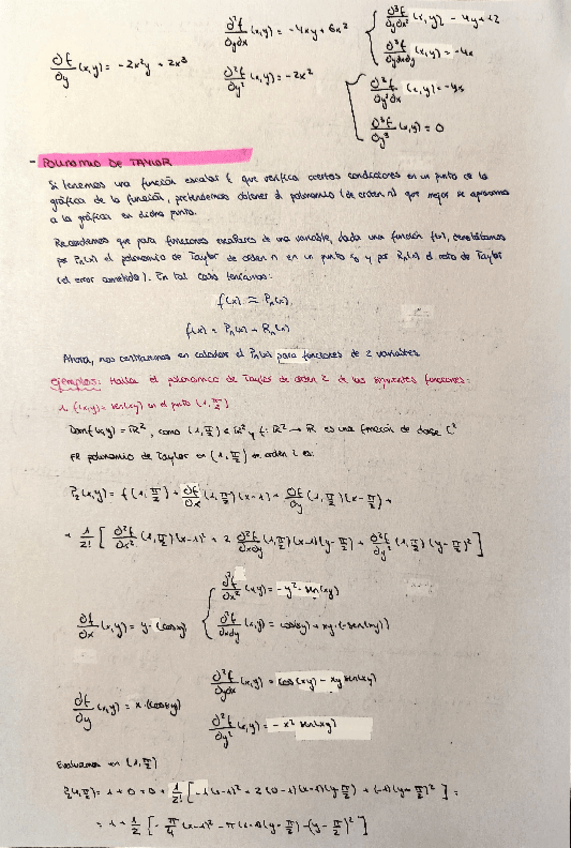 ∂f/∂y (x,y) = -2x²y + 2x³
∂²f/∂y∂x (x,y) = -4xy + 6x²
∂²f/∂y² (x,y) = -2x²
∂³f/∂y∂x² (x,y) - 4y+12
∂³f/∂y∂x∂y (x,y) = -4x
(x,y) = -4x
∂³f/∂y³ (x,y) = 0
- POLINOMIO DE TAYLOR
Si tenemos una función escalar f que verifica ciertas condiciones en un punto de la
gráfica de la función, pretendemos obtener el polinomio (de orden n) que mejor se aproxima
a la gráfica en dicho punto.
Recordemos que para funciones escalares de una variable, dada una función f(x), denotábamos
por Pn(x) el polinomio de Taylor de orden n en un punto y por Rn(x) el resto de Taylor
(el error cometido). En tal caso teníamos:
f(x) ≈ Pn(x)
f(x) = Pn(x) + Rn(x)
Ahora, nos centraremos en calcular el Pn(x) para funciones de 2 variables
Ejemplos: Halla el polinomio de Taylor de orden 2 de las siguientes funciones:
1. f(x,y) = sen(xy) en el punto (1, π/2)
Dom f(x,y) = ℝ², como (1, π/2) ∈ ℝ² y f: ℝ² → ℝ es una función de clase C²
el polinomio de Taylor en (1, π/2) de orden 2 es:
P₂(x,y) = f(1, π/2) + ∂f/∂x (1, π/2)(x-1) + ∂f/∂y (1, π/2)(x - π/2) +
+ 1/2! [ ∂²f/∂x² (1, π/2)(x-1)² + 2 ∂²f/∂x∂y (1, π/2)(x-1)(y - π/2) + ∂²f/∂y² (1, π/2)(y - π/2)² ]
∂f/∂x (x,y) = y · (cosxy)
∂²f/∂x² (x,y) = -y² · sen(xy)
∂²f/∂x∂y (x,y) = cos(xy) + xy·(-sen(xy))
∂f/∂y (x,y) = x · (cosxy)
∂²f/∂y∂x (x,y) = cos(xy) - xy sen(xy)
∂²f/∂y² (x,y) = - x² sen(xy)
Evaluamos en (1, π/2)
= 1 + 0 + 0 + 1/2! [ (x-1)² + 2(0-1)(x-1)(y - π/2) + (-1)(y - π/2)² ] =
= 1 + 1/2 [ - π/4 (x-1)² - π(x-1)(y - π/2) - (y - π/2)² ]